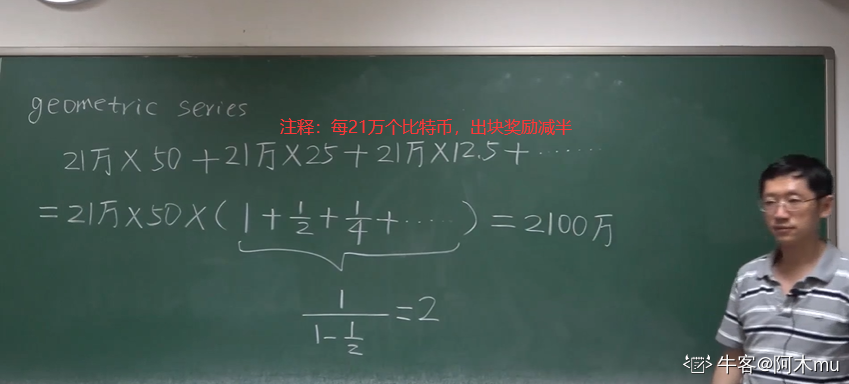 geometric series
注释：每21万个比特币，出块奖励减半
21万×50+21万×25+21万×12.5+……
=21万×50×(1+1/2+1/4+……)=2100万
1/(1-1/2)=2
牛客@阿木mu